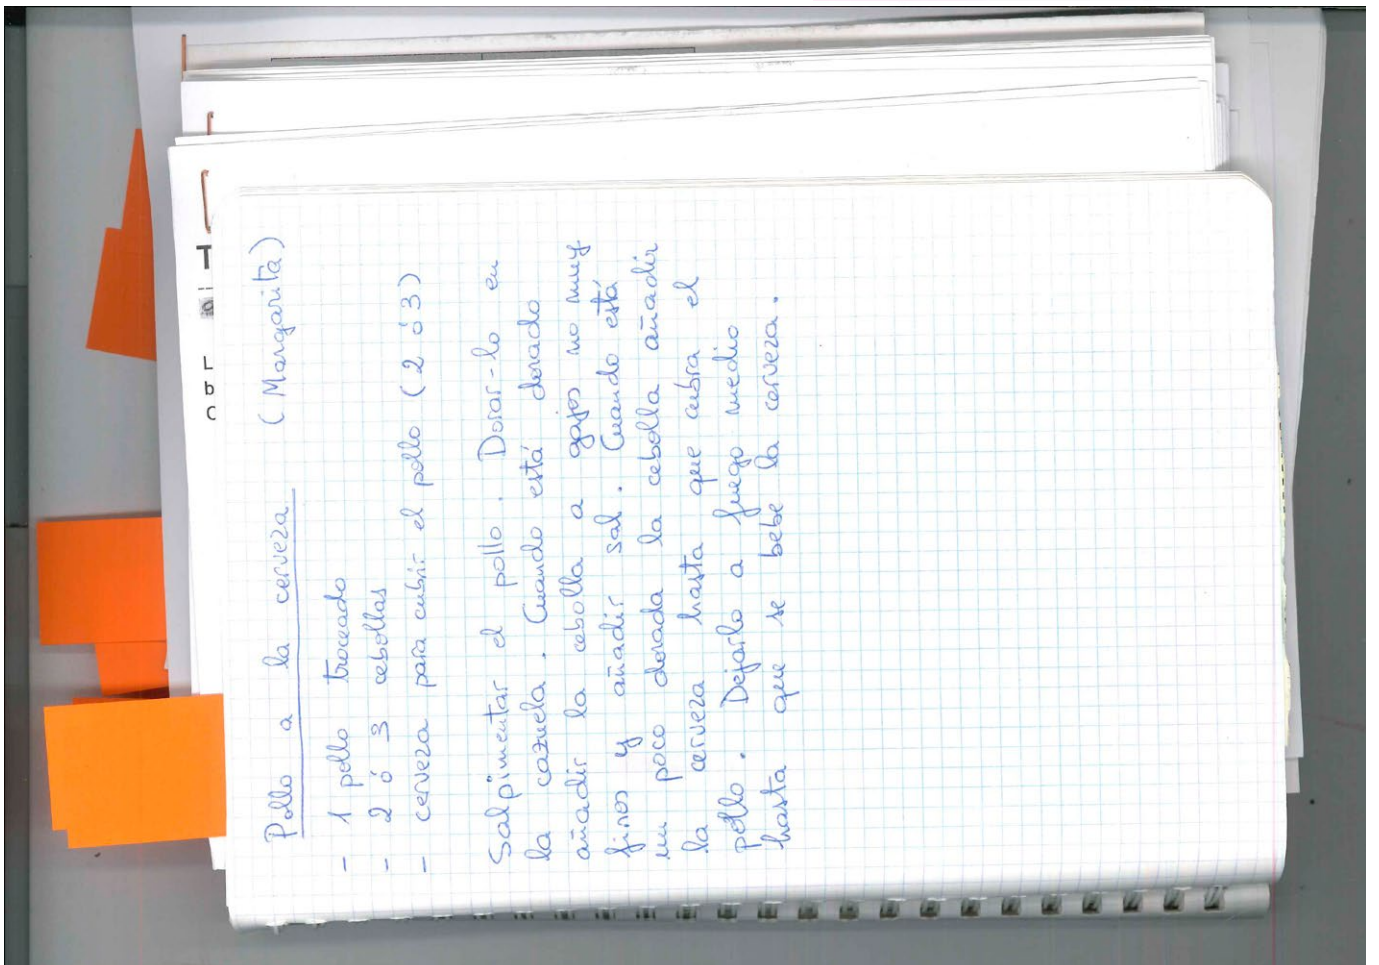 Pollo a la cerveza (Margarita)
- 1 pollo troceado
- 2 ó 3 cebollas
- cerveza para cubrir el pollo (2 ó 3)
Salpimentar el pollo. Dorar-lo en
la cazuela. Cuando está dorado
añadir la cebolla a gajos no muy
finos y añadir sal. Cuando está
un poco dorada la cebolla añadir
la cerveza hasta que cubra el
pollo. Dejarlo a fuego medio
hasta que se bebe la cerveza.